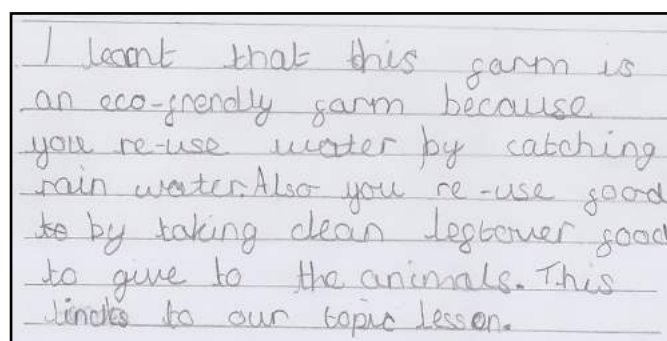 I learnt that this farm is
an eco-frendly farm because
you re-use water by catching
rain water. Also you re-use food
to by taking clean leftover food
to give to the animals. This
lincks to our topic lesson.